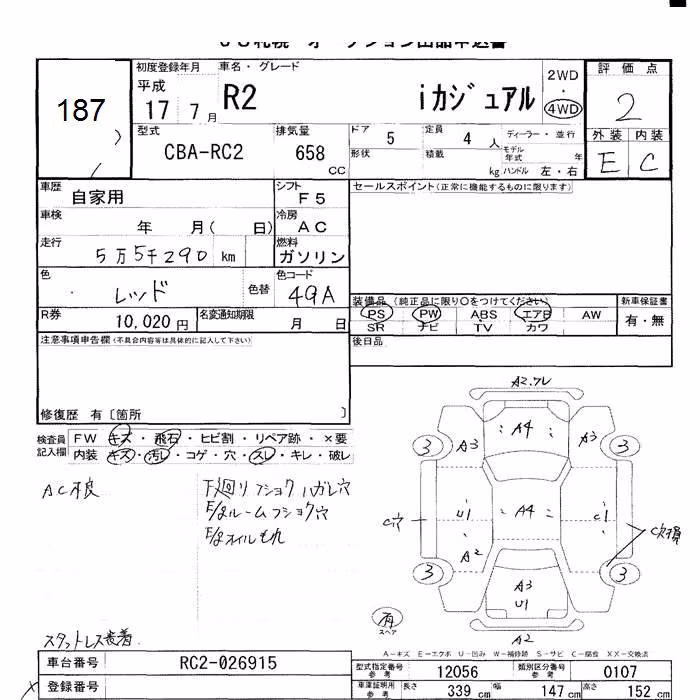 187
初度登録年月 車名・グレード
平成
17 7月 R2 iカジュアル
2WD
4WD
評価点
2
外装 内装
E C
型式 CBA-RC2
排気量 658 CC
ドア 5 定員 4 人 ディーラー・並行
形状 積載 kg モデル年式 年
ハンドル 左・右
車歴 自家用
シフト F5
セールスポイント(正常に機能するものに限ります)
車検 年 月( 日)
冷房 AC
走行 5万5千290 km
燃料 ガソリン
色 レッド 色替
色コード 49A
装備品 (純正品に限り○をつけてください)
新車保証書
PS PW ABS エアB AW
SR ナビ TV カワ
有・無
R券 10,020円 名変通知期限 月 日
後日品
注意事項申告欄(不具合内容等は具体的に記入して下さい)
修復歴 有〔箇所 〕
検査員記入欄
FW キズ・飛石・ヒビ割・リペア跡・×要
内装 キズ・汚レ・コゲ・穴・スレ・キレ・破レ
AC不良
下廻りフショクハガレ穴
E/gルームフショク穴
E/gオイルもれ
スタットレス装着
A2.ワレ
A4
A3 A3
3 3
C穴 U1 A4 C1
C欠損
A2
3 3
A3
U1
A2
有
スペア
A-キズ E-エクボ U-凹み W-補修跡 S-サビ C-腐食 XX-交換済
車台番号 RC2-026915
型式指定番号 参考 12056 類別区分番号 参考 0107
登録番号
車庫証明用 参考 長さ 339 cm 幅 147 cm 高さ 152 cm